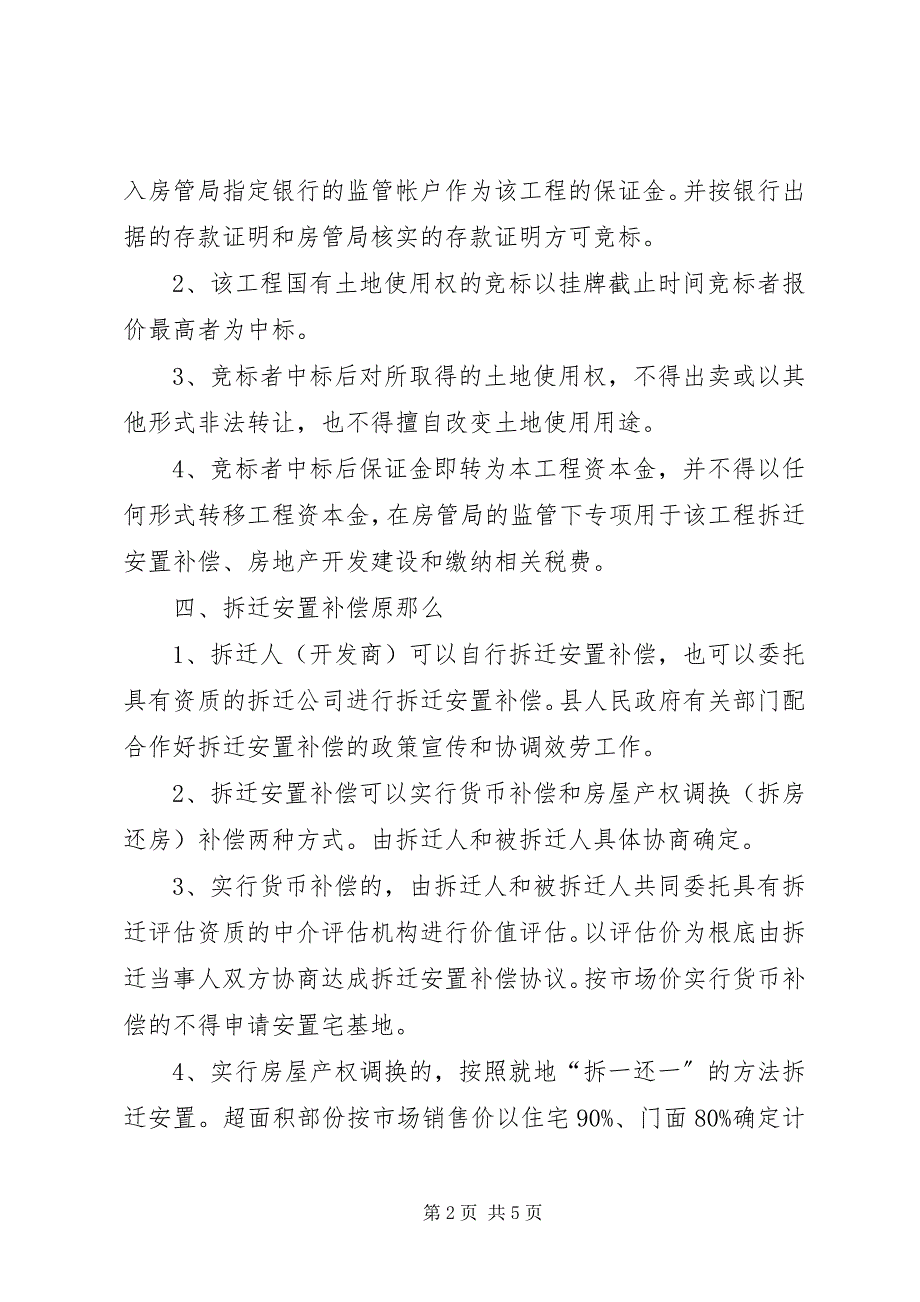 入房管局指定银行的监管帐户作为该工程的保证金。并按银行出
据的存款证明和房管局核实的存款证明方可竞标。
2、该工程国有土地使用权的竞标以挂牌截止时间竞标者报
价最高者为中标。
3、竞标者中标后对所取得的土地使用权，不得出卖或以其
他形式非法转让，也不得擅自改变土地使用用途。
4、竞标者中标后保证金即转为本工程资本金，并不得以任
何形式转移工程资本金，在房管局的监管下专项用于该工程拆迁
安置补偿、房地产开发建设和缴纳相关税费。
四、拆迁安置补偿原那么
1、拆迁人（开发商）可以自行拆迁安置补偿，也可以委托
具有资质的拆迁公司进行拆迁安置补偿。县人民政府有关部门配
合作好拆迁安置补偿的政策宣传和协调效劳工作。
2、拆迁安置补偿可以实行货币补偿和房屋产权调换（拆房
还房）补偿两种方式。由拆迁人和被拆迁人具体协商确定。
3、实行货币补偿的，由拆迁人和被拆迁人共同委托具有拆
迁评估资质的中介评估机构进行价值评估。以评估价为根底由拆
迁当事人双方协商达成拆迁安置补偿协议。按市场价实行货币补
偿的不得申请安置宅基地。
4、实行房屋产权调换的，按照就地“拆一还一〞的方法拆
迁安置。超面积部份按市场销售价以住宅90%、门面80%确定计
第2页 共5页